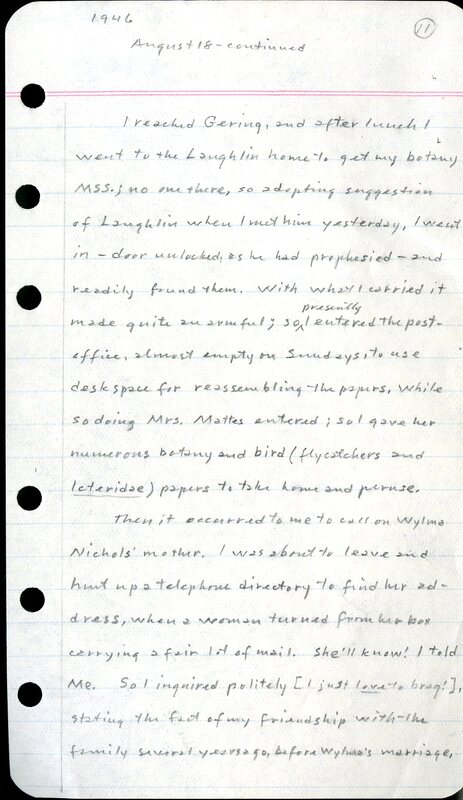 1946
11
August 18 - continued
I reached Gering, and after lunch I
went to the Laughlin home to get my botany
MSS.; no one there, so adopting suggestion
of Laughlin when I met him yesterday, I went
in - door unlocked, as he had prophesied - and
readily found them. With what I carried it
made quite an armful; so, presently I entered the post-
office, almost empty on Sundays, to use
desk space for reassembling the papers. While
so doing Mrs. Mattes entered; so I gave her
numerous botany and bird (flycatchers and
Icteridae) papers to take home and peruse.
Then it occurred to me to call on Wylma
Nichols' mother. I was about to leave and
hunt up a telephone directory to find her ad-
dress, when a woman turned from her box
carrying a fair lot of mail. She'll know! I told
Me. So I inquired politely [I just love to brag!],
stating the fact of my friendship with the
family several years ago, before Wylma's marriage,